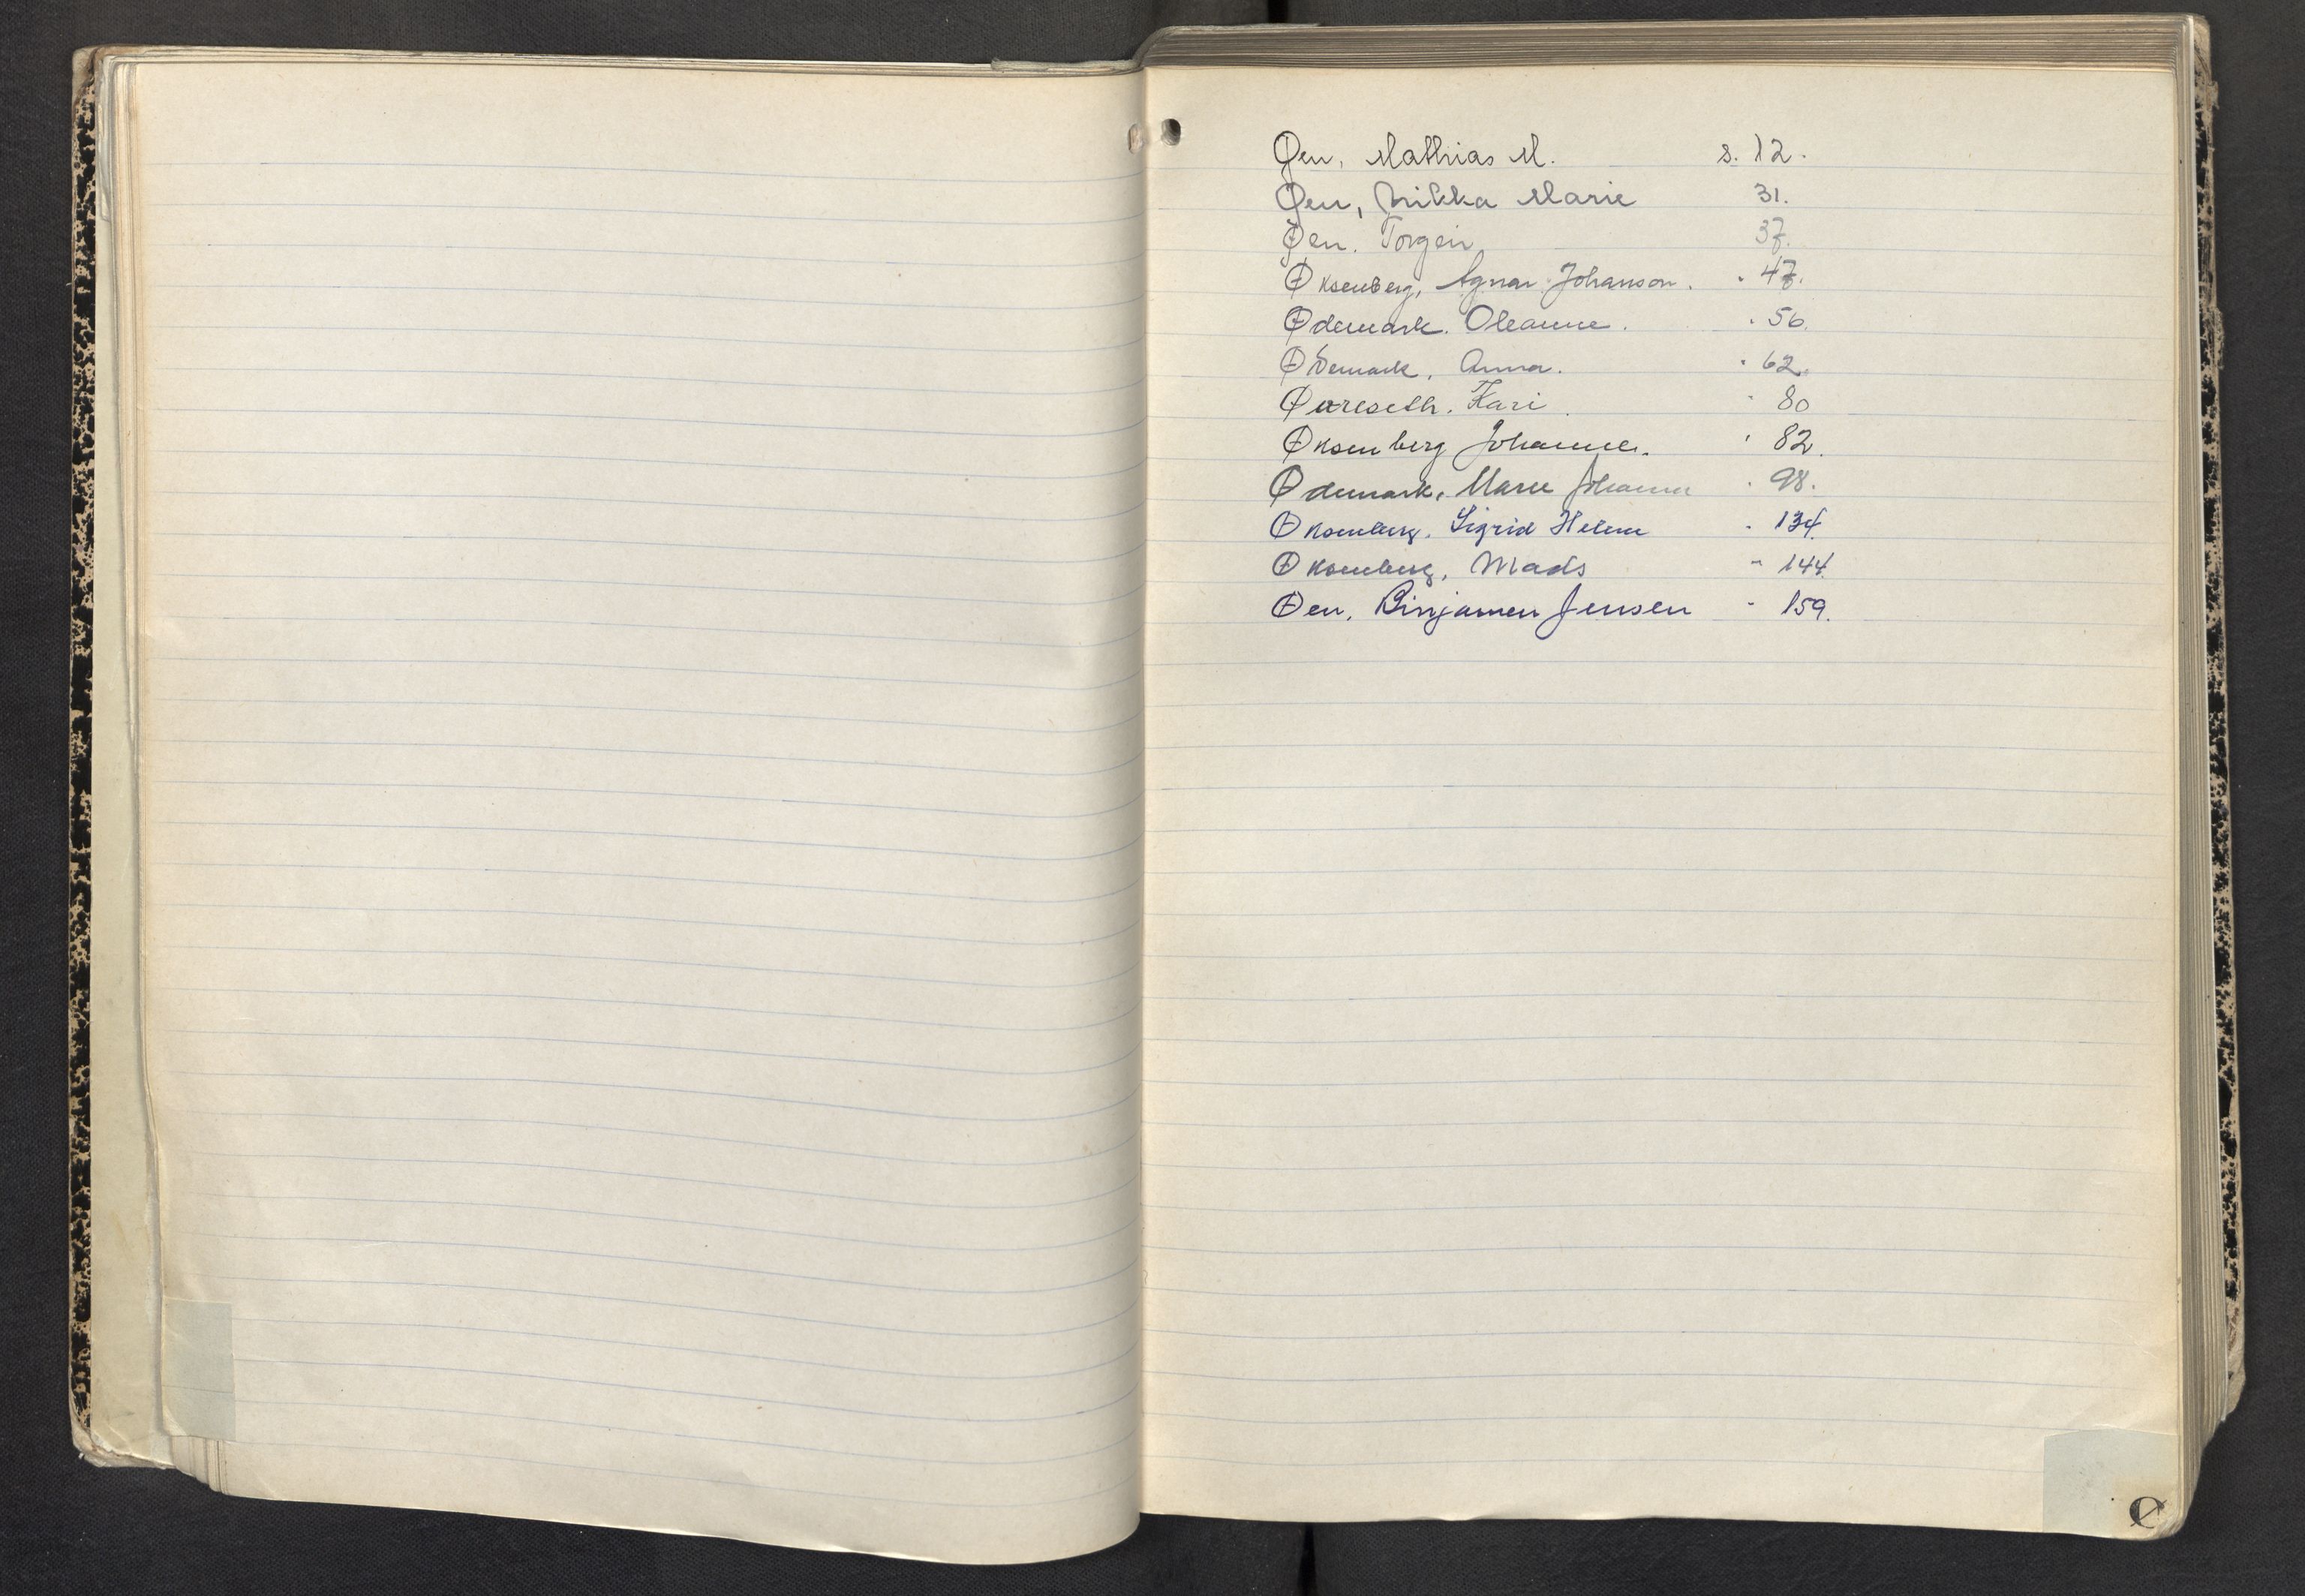 Øen, Mathias M. s. 12.
Øen, Mikka Marie 31.
Øen. Torgeir 37.
Øksenberg, Agnar Johanson. " 47.
Ødemark. Oleanne. " 56.
Ødemark, Anna. " 62.
Øvreseth. Kari. " 80
Øksenberg Johanne. " 82.
Ødemark, Maree Johanna " 98.
Øksenberg. Sigrid Helene " 134.
Øksenberg, Mads " 144.
Øen, Binjamen Jensen " 159.
Ø